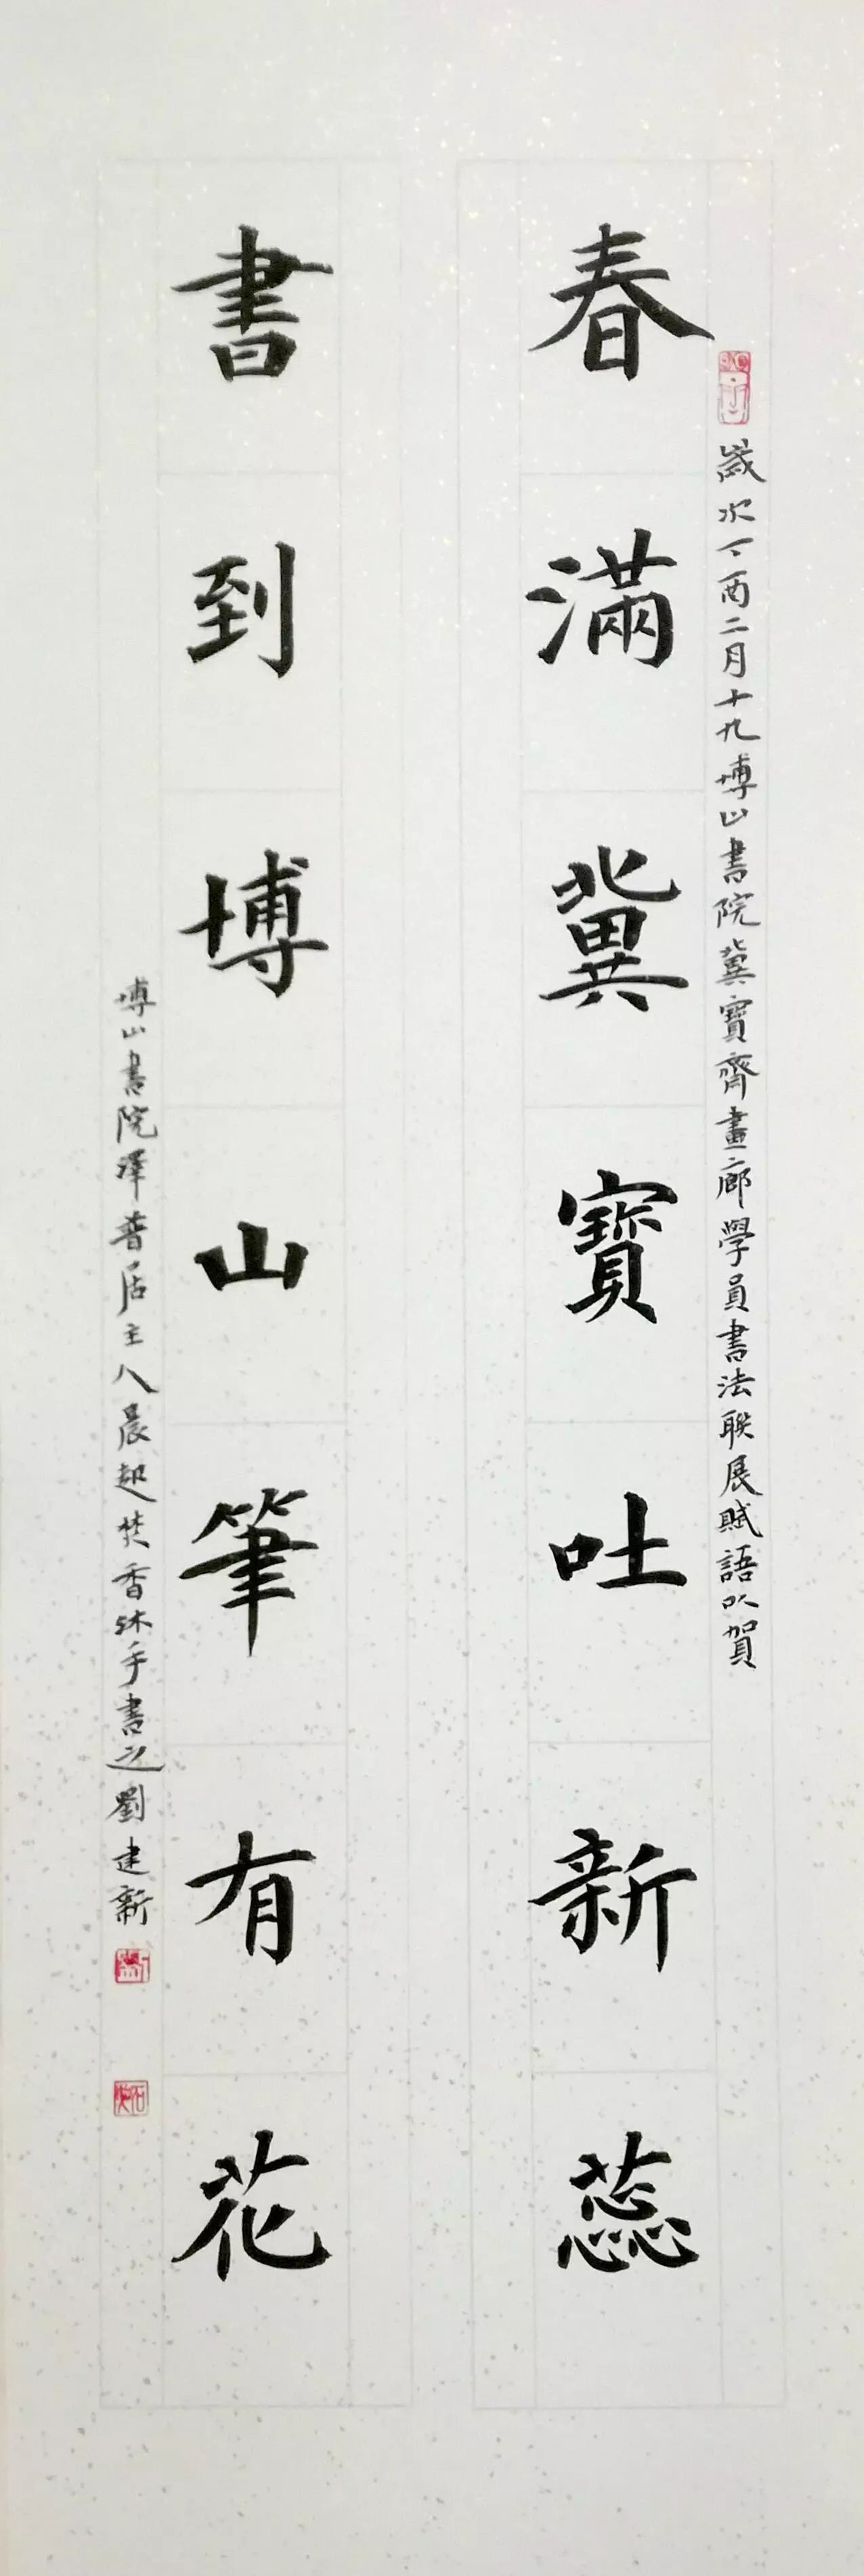 歲次丁酉二月十九博山書院冀寶齊畫廊學員書法聯展賦語以賀
春滿冀寶吐新蕊
書到博山筆有花
博山書院澤普居主人晨起焚香沐手書之劉建新